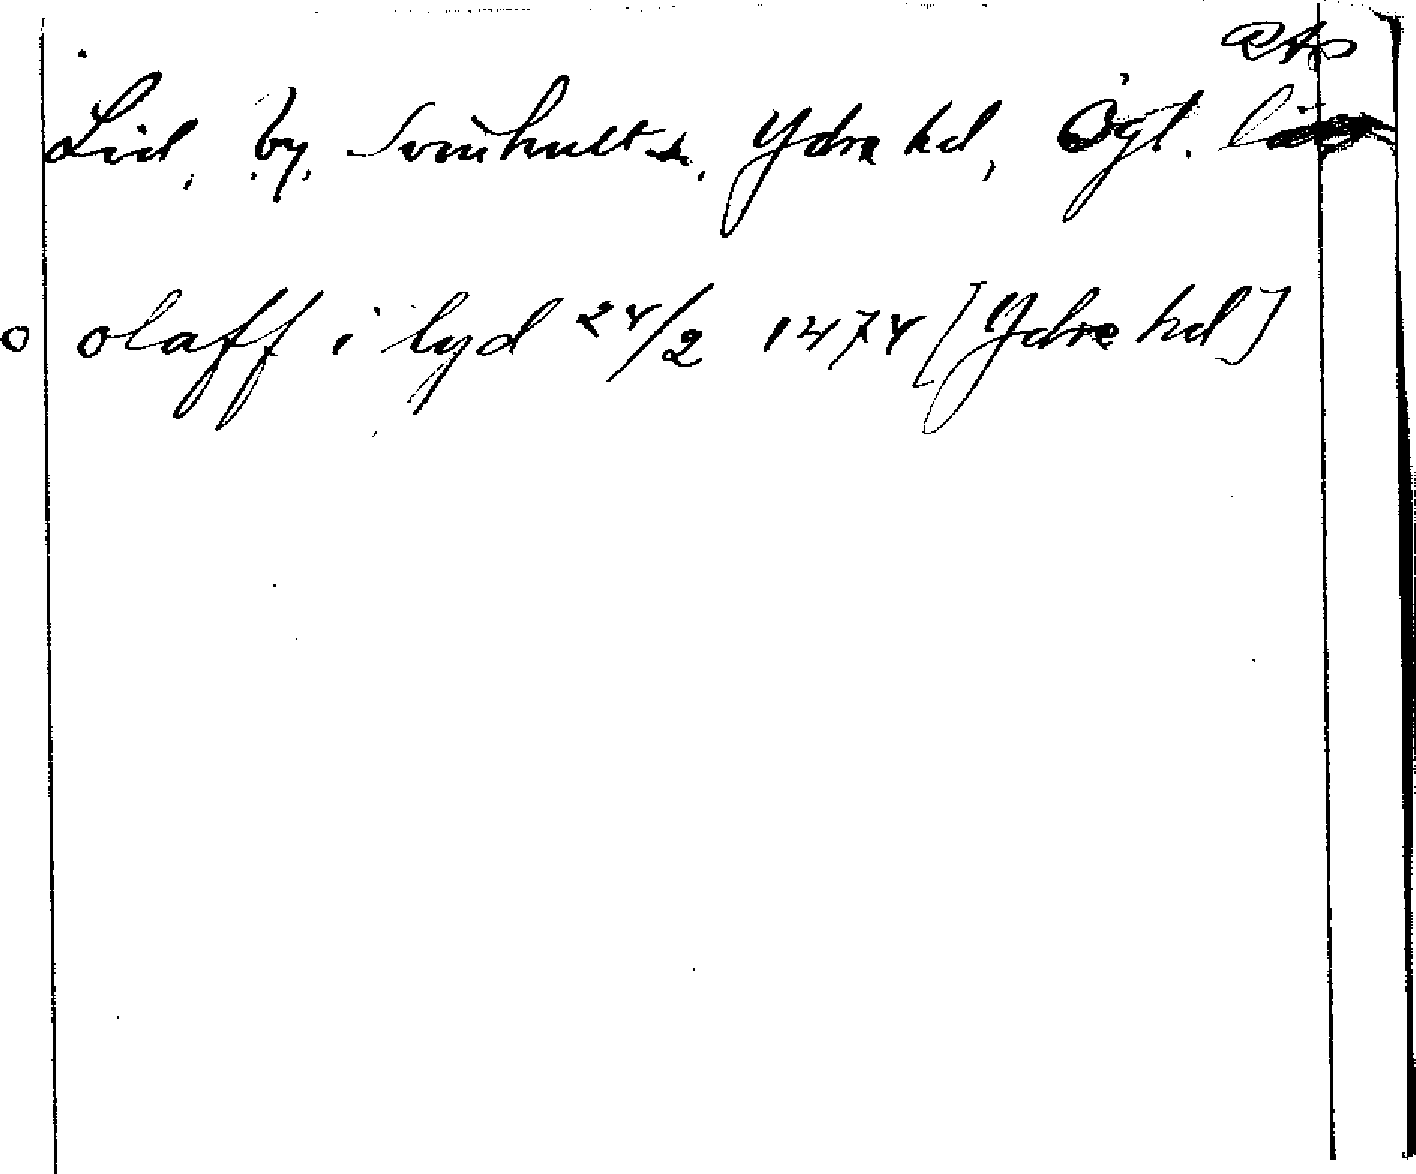 Lid, by, Svinhult sn, Ydre hd, Ögl. län
o olaff i lyd 24/2 1474 [Ydre hd]